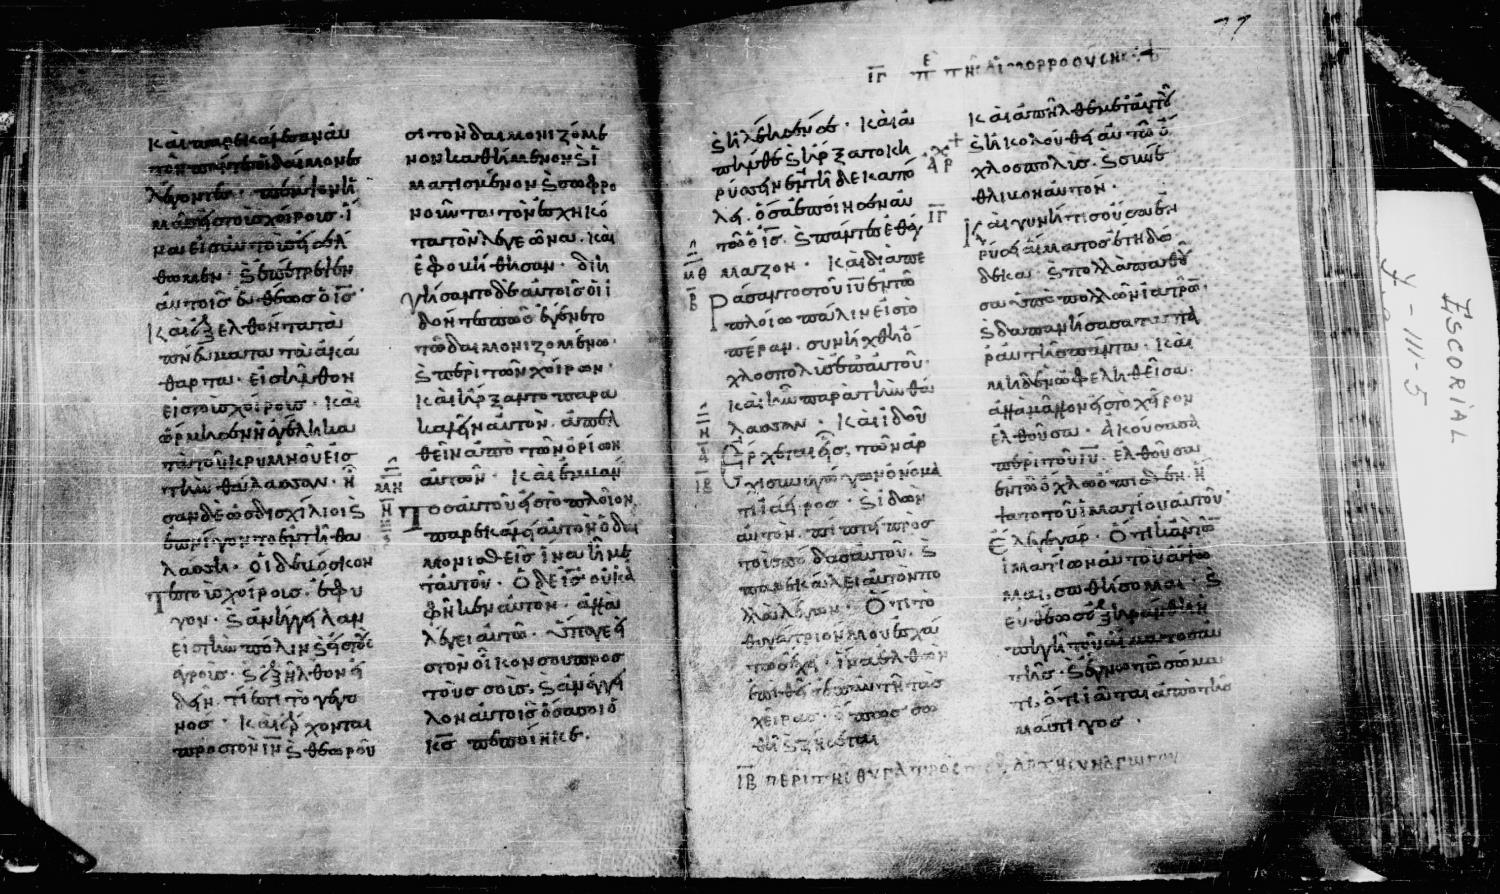 καὶ παρεκάλεσαν αὐ
τὸν πάντες οἱ δαίμονε
λέγοντες· πέμψον ἡ
μᾶς εἰς τοὺς χοίρους· ἵ
να εἰς αὐτοὺς εἰσέλ
θωμεν· καὶ ἐπέτρεψεν
αὐτοῖς εὐθέως ὁ ις̅·
Καὶ ἐξελθόντα τὰ
πνεύματα τὰ ἀκά
θαρτα· εἰσῆλθον
εἰς τοὺς χοίρους· καὶ
ὥρμησεν ἡ ἀγέλη κα
τὰ τοῦ κρημνοῦ εἰς
τὴν θάλασσαν· ἦ
σαν δὲ ὡς δισχίλιοι καὶ
ἐπνίγοντο ἐν τῆ θα
λάσση· οἱ δὲ βόσκον
τες τοὺς χοίρους· ἔφυ
γον· καὶ ἀνήγγειλαν
εἰς τὴν πόλιν καὶ εἰς τοὺς
ἀγρούς· καὶ ἐξῆλθον ἰ
δεῖν τί ἐστι τὸ γεγο
νός· Καὶ ἔρχονται
πρὸς τὸν ιν̅ καὶ θεωροῦ
σι τὸν δαιμονιζόμε
νον καθήμενον καὶ ἱ
ματισμένον καὶ σωφρο
νοῦντα· τὸν ἐσχηκό
τα τὸν λεγεῶνα. καὶ
ἐφοβήθησαν· διη
γήσαντο δὲ αὐτοῖς οἱ ἰ
δόντες πῶς ἐγένετο
τῶ δαιμονιζομένω·
καὶ περὶ τῶν χοίρων·
Καὶ ἤρξαντο παρα
καλεῖν αὐτὸν. ἀπελ
θεῖν ἀπὸ τῶν ὁρίων
αὐτῶν· Καὶ ἐμβαίν
Τος αὐτοῦ εἰς τὸ πλοῖον
παρεκάλει αὐτὸν ὁ δαι
μονισθεὶς ἵνα ἦ με
τ' αὐτοῦ· Ὁ δὲ ις̅ οὐκ ἀ
φῆκεν αὐτὸν· ἀλλὰ
λέγει αὐτῶ· ὕπαγε εἰ
ς τὸν οἶκόν σου πρὸς
τοὺς σοὺς, καὶ ἀνάγγει
λον αὐτοῖς ὅσα σοι ὁ
κς̅ πεποίηκε.
77
ιγ̅ πε τῆς αἱμορροούσης
καὶ ἠλέησέν σε· Καὶ ἀ
πῆλθε καὶ ἤρξατο κη
ρύσσειν ἐν τῆ δεκαπό
λει. ὅσα ἐποίησεν αὐ
τῶ ὁ ις̅. καὶ πάντες ἐθαύ
μαζον· Καὶ διαπε
ράσαντος τοῦ ιυ̅ ἐν τῶ
πλοίω πάλιν εἰς τὸ
πέραν. συνήχθη ὄ
χλος πολὺς ἐπ' αὐτὸν.
καὶ ἦν παρὰ τὴν θά
λασσαν· Καὶ ἰδοὺ
ἔρχεται εἷς, τῶν ἀρ
χισυναγώγων ὀνόμα
τι ἰάειρος· καὶ ἰδὼν
αὐτὸν. πίπτει πρὸς
τοὺς πόδας αὐτοῦ. καὶ
παρεκάλει αὐτὸν πο
λλὰ λέγων· Ὅτι τὸ
θυγάτριόν μου ἐσχά
τως ἔχει. ἵνα ἐλθὼν
ἐπιθῆς αὐτῆ τὰς
χεῖρας· ὅπως σω
θῆ καὶ ζήσεται
ιβ̅ περὶ τῆς θυγατρὸς τοῦ ἀρχισυναγώγου
Καὶ ἀπῆλθε μετ' αὐτοῦ
καὶ ἠκολούθει αὐτῶ ὄ
χλος πολὺς. καὶ συνέ
θλιβον αὐτόν.
ιγ̅
Καὶ γυνή τις οὖσα ἐν
ῥύσει αἵματος ἔτη δώ
δεκα· καὶ πολλὰ παθοῦ
σα ὑπὸ πολλῶν ἰατρῶν·
καὶ δαπανήσασα τὰ πα
ρ' αὐτῆς πάντα· καὶ
μηδὲν ὠφεληθεῖσα·
ἀλλὰ μᾶλλον εἰς τὸ χεῖρον
ἐλθοῦσα· ἀκούσασα
περὶ τοῦ ιυ̅· ἐλθοῦσα
ἐν τῶ ὄχλω ὄπισθεν. ἥ
ψατο τοῦ ἱματίου αὐτοῦ·
ἔλεγε γάρ· Ὅτι κἂν τῶν
ἱματίων αὐτοῦ ἅψω
μαι, σωθήσομαι· καὶ
εὐθέως ἐξηράνθη ἡ
πηγὴ τοῦ αἵματος αὐ
τῆς· καὶ ἔγνω τῶ σώμα
τι, ὅτι ἴαται ἀπὸ τῆς
μάστιγος·
ESCORIAL
Y-III-5